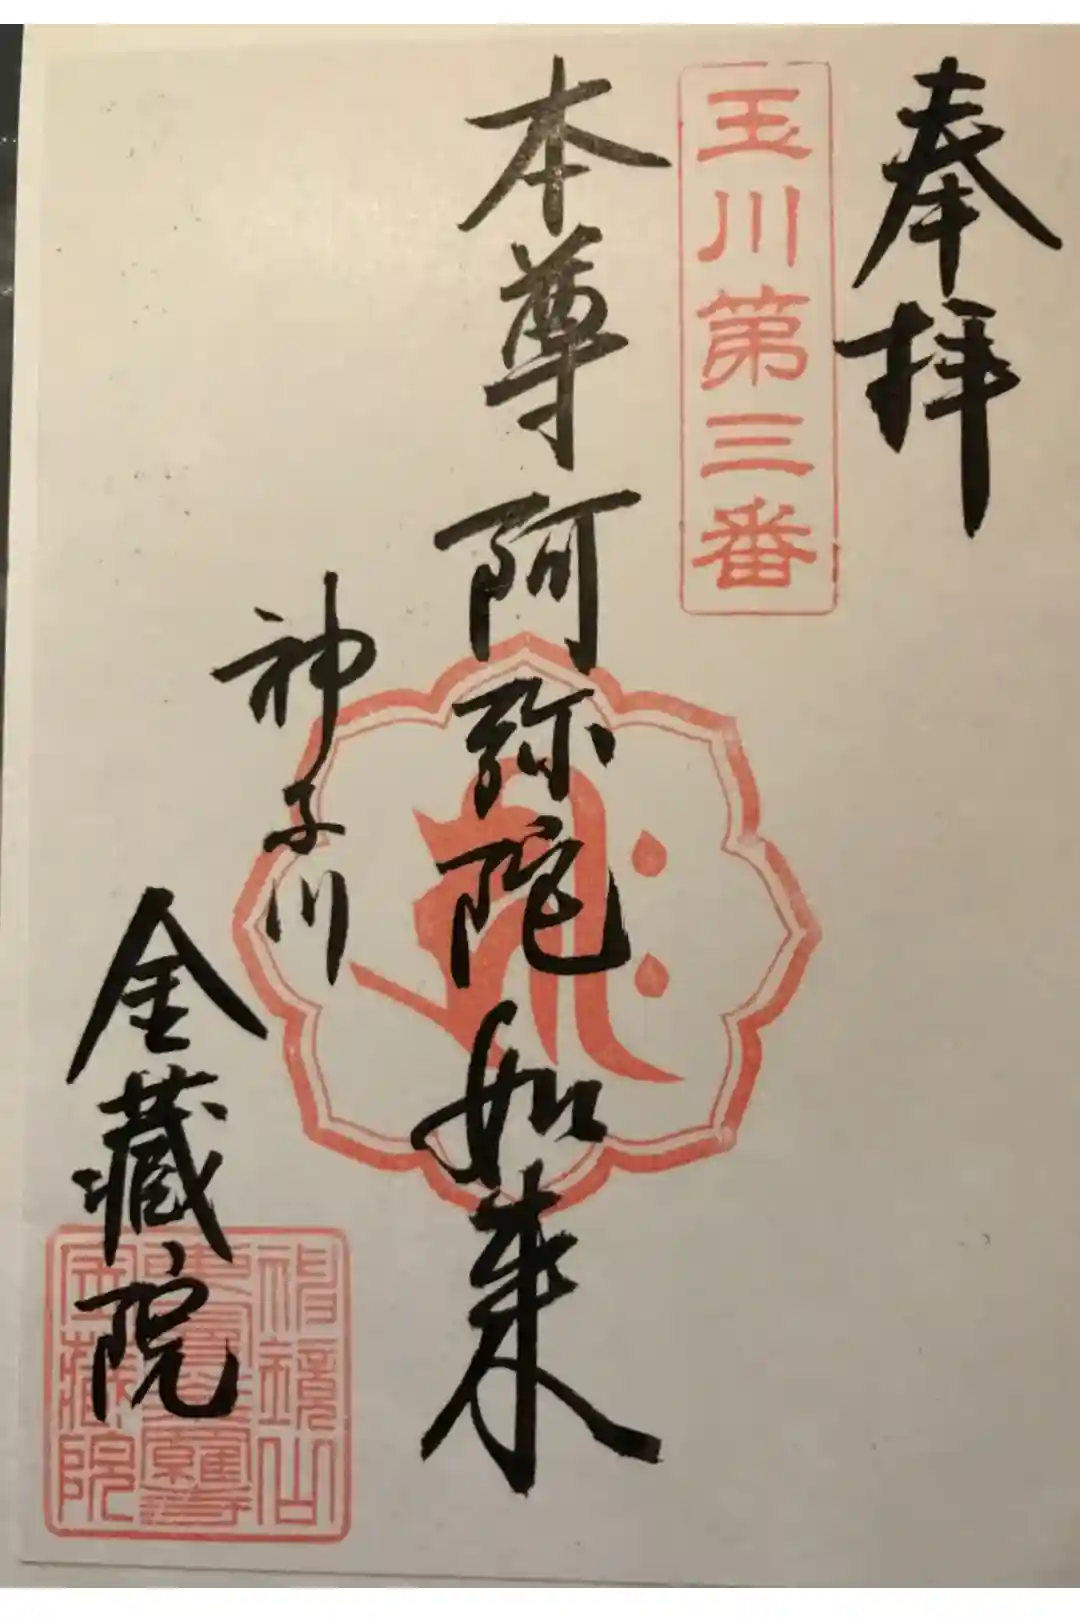 奉拝
玉川第三番
本尊阿弥陀如来
神子川
金蔵院
金蔵院